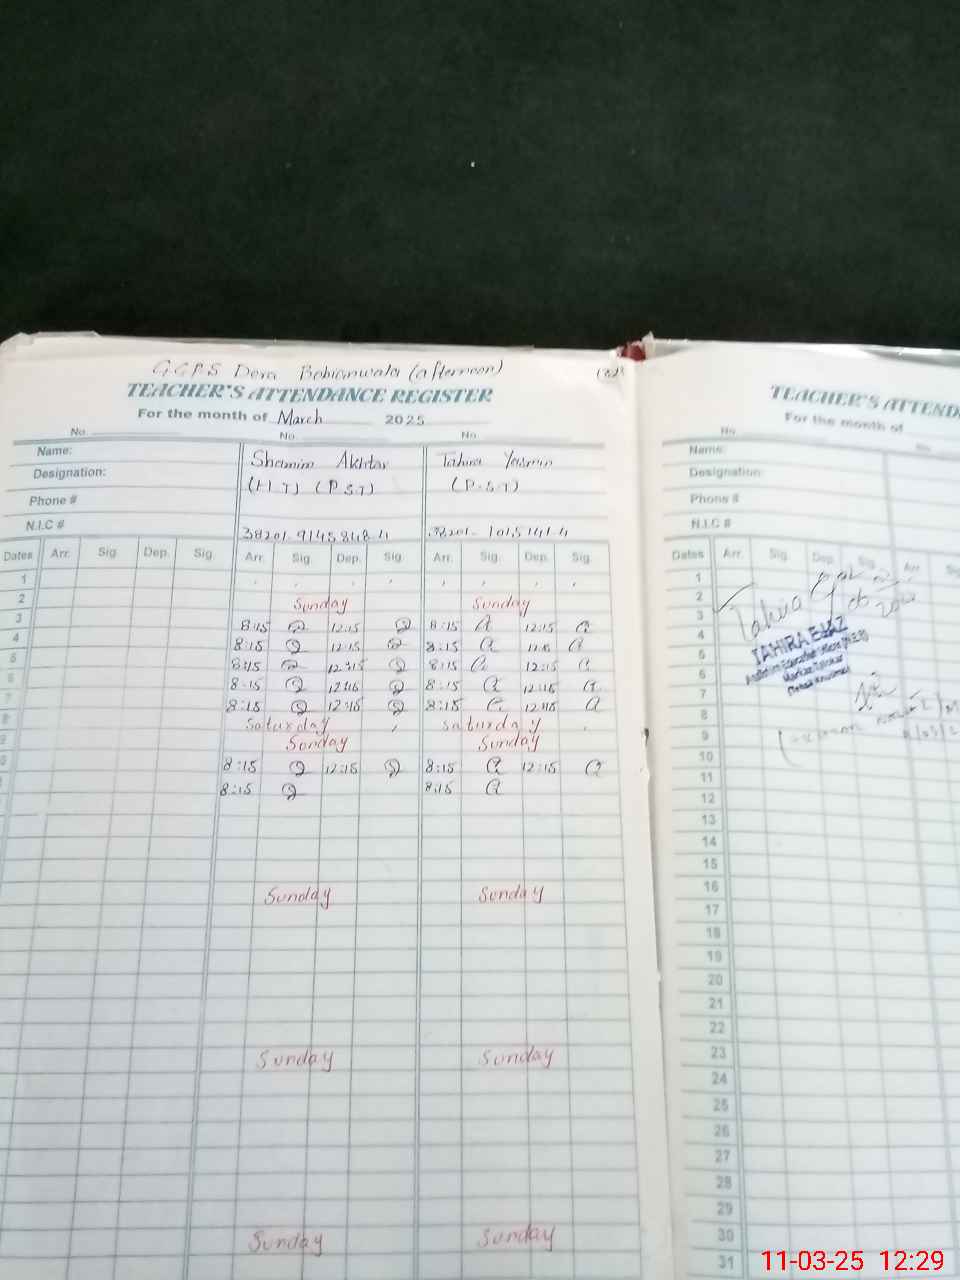 G.G.P.S Dera (afternoon)
TEACHER'S ATTENDANCE REGISTER
For the month of March 2025
No. No. No.
Name: Shamim Akhtar Tahira Yasmin
Designation: (H.T) (P.S.T) (P.S.T)
Phone #
N.I.C #
Dates Arr. Sig. Dep. Sig. Arr. Sig. Dep. Sig. Arr. Sig. Dep. Sig.
1
2 Sunday Sunday
3 8:15 12:15 8:15 12:15
4 8:15 12:15 8:15
5 8:15 12:15 8:15 12:15
6 8:15 12:15 8:15 12:15
7 8:15 12:15 8:15 12:15
8 Saturday Saturday
9 Sunday Sunday
8:15 12:15 8:15 12:15
8:15 8:15
Sunday Sunday
Sunday Sunday
Sunday Sunday
TEACHER'S ATTEND
For the month of
No.
Name:
Designation:
Phone #
N.I.C #
Dates Arr. Sig. Dep. Sig. Arr.
1
2
3
4
5
6
7
8
9
10
11
12
13
14
15
16
17
18
19
20
21
22
23
24
25
26
27
28
29
30
31
Tahira
TAHIRA EJAZ
11-03-25 12:29